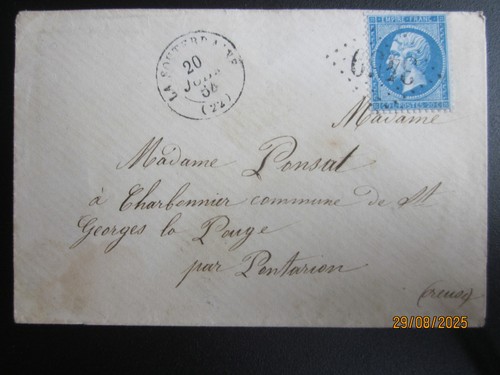 LA SOUTERRAINE
20
JUIN
(22)
EMPIRE FRANC
POSTES
Madame
Madame Ponsat
à Charbonnier commune de St
Georges la Pouge
par Pontarion
(Creuse)
29/08/2025